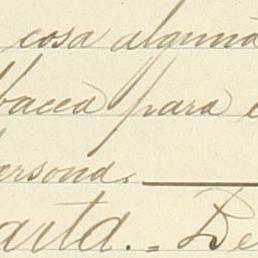 cosa alguna
bacea para
ersona.
arta. = De